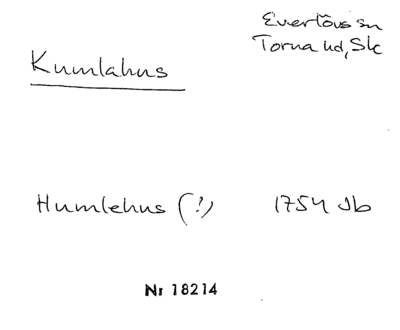 Everlövs sn
Torna hd, Sk
Kumlahus
Humlehus (!)
1754 Jb
Nr 18214